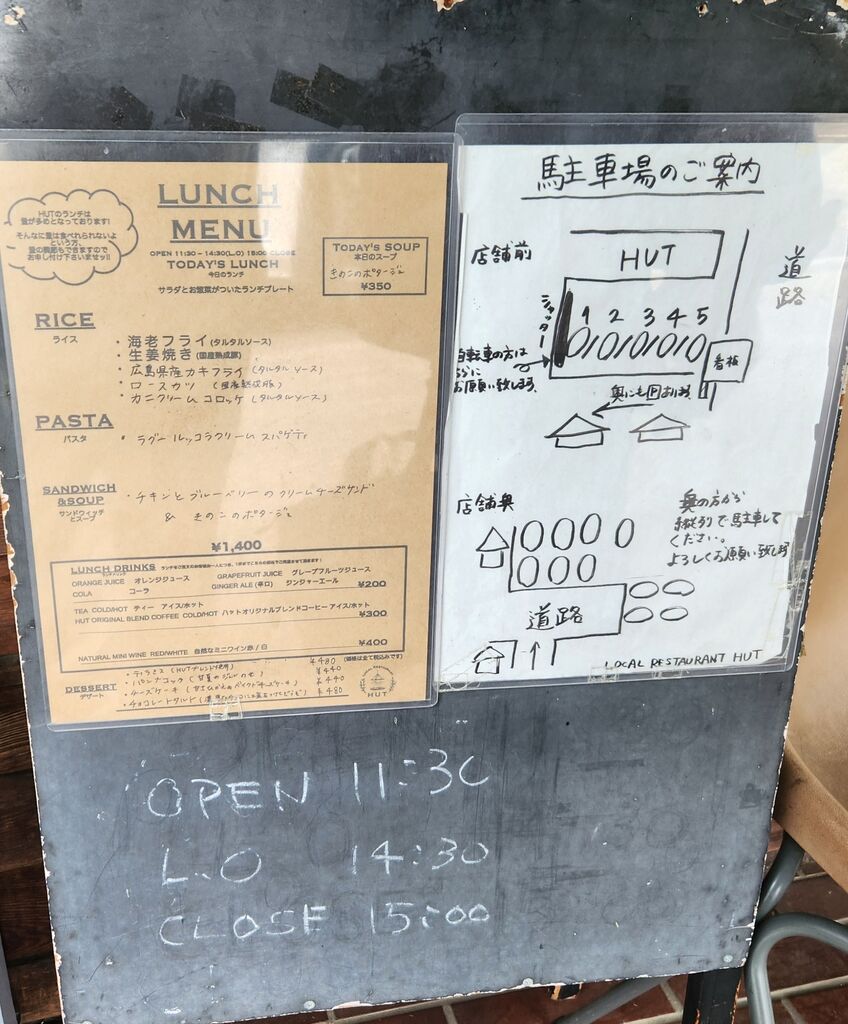 HUTのランチは
量が多めとなっております!
そんなに量は食べれられないよ
という方、
量の調節もできますので
お申し付け下さいませッ!!
LUNCH
MENU
OPEN 11:30 - 14:30(L.O) 15:00 CLOSE
TODAY'S LUNCH
今日のランチ
サラダとお惣菜がついたランチプレート
TODAY'S SOUP
本日のスープ
きのこのポタージュ
¥350
RICE
ライス
・海老フライ(タルタルソース)
・生姜焼き(国産熟成豚)
・広島県産カキフライ(タルタルソース)
・ロースカツ(国産熟成豚)
・カニクリームコロッケ(タルタルソース)
PASTA
パスタ
・ラグールッコラクリームスパゲティ
SANDWICH
&SOUP
サンドウィッチ
とスープ
・チキンとブルーベリーのクリームチーズサンド
& きのこのポタージュ
¥1,400
LUNCH DRINKS
ORANGE JUICE オレンジジュース GRAPEFRUIT JUICE グレープフルーツジュース
COLA コーラ GINGER ALE (辛口) ジンジャーエール ¥200
TEA COLD/HOT ティー アイス/ホット
HUT ORIGINAL BLEND COFFEE COLD/HOT ハットオリジナルブレンドコーヒー アイス/ホット ¥300
NATURAL MINI WINE RED/WHITE 自然なミニワイン赤 / 白 ¥400
(価格は全て税込みです)
DESSERT
デザート
・ティラミス(HUTブレンド使用) ¥480
・パンナコッタ ¥440
・チーズケーキ ¥440
・チョコレートタルト ¥480
HUT
駐車場のご案内
店舗前
HUT
道路
シャッター
1 2 3 4 5
看板
自転車の方は
こちらに
お願い致します。
奥にもPあります
店舗奥
奥の方から
縦列で駐車して
ください。
よろしくお願い致します
道路
LOCAL RESTAURANT HUT
OPEN 11:30
L.O 14:30
CLOSE 15:00